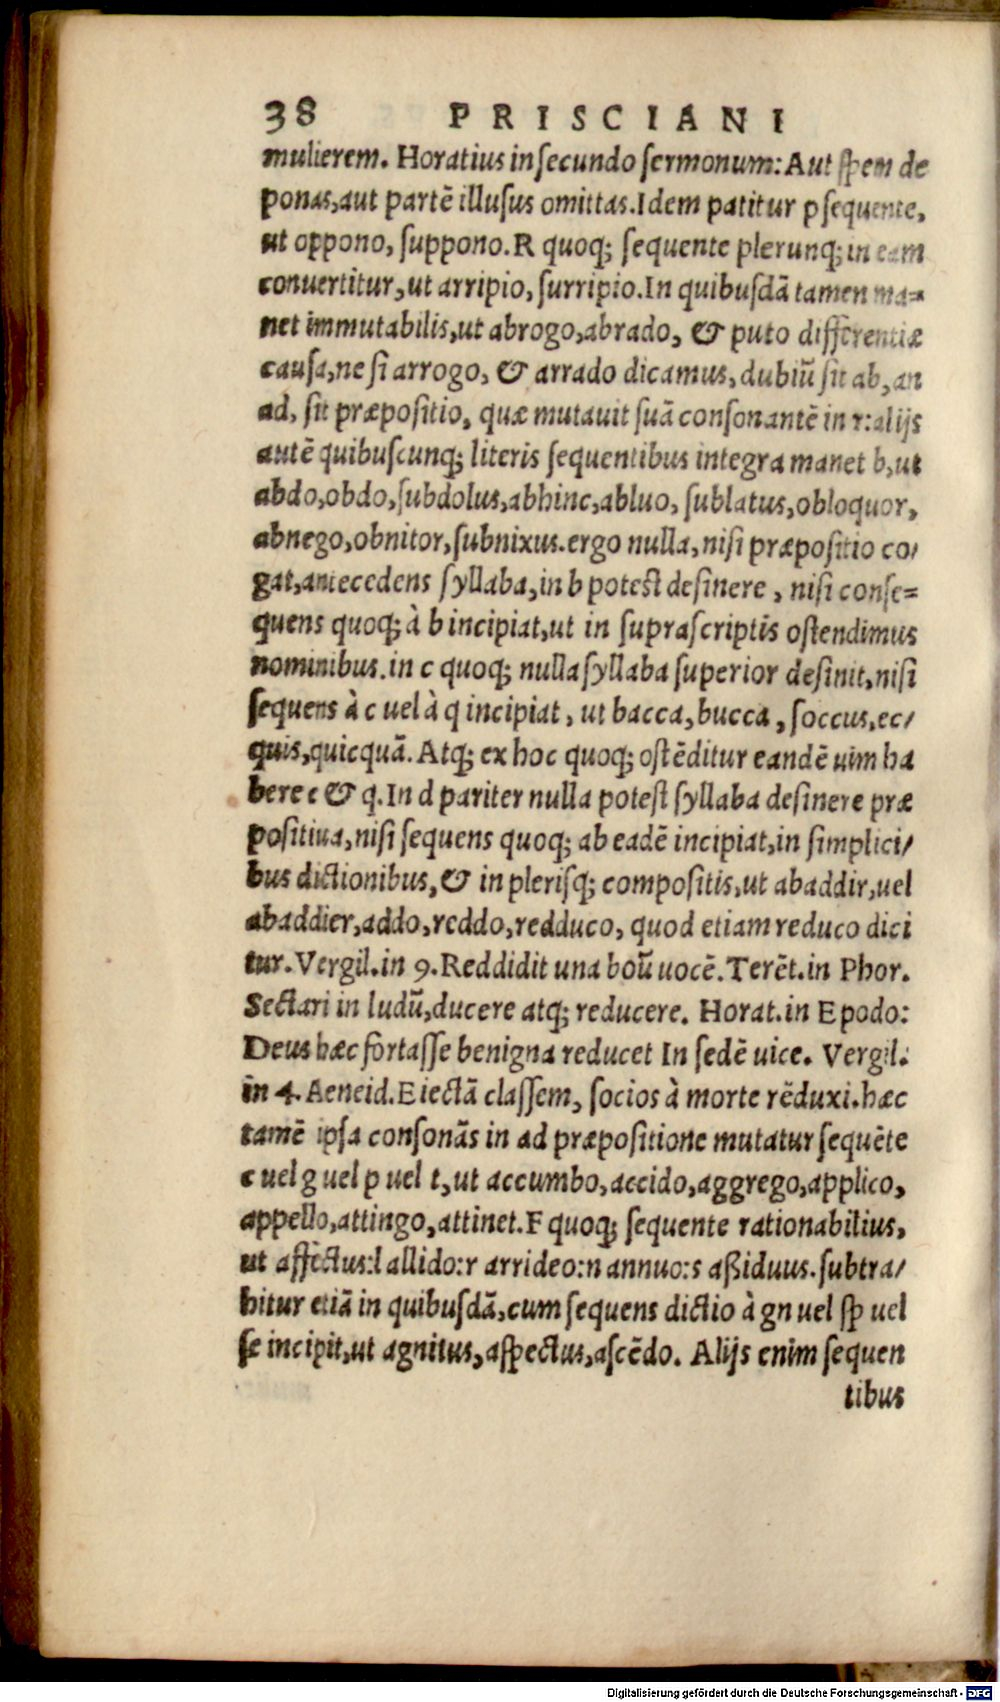 38 PRISCIANI
mulierem. Horatius in ſecundo ſermonum: Aut ſpem de
ponas, aut partē illuſus omittas. Idem patitur p ſequente,
ut oppono, ſuppono. R quoq; ſequente plerunq; in eam
conuertitur, ut arripio, ſurripio. In quibuſdā tamen ma=
net immutabilis, ut abrogo, abrado, & puto differentiæ
cauſa, ne ſi arrogo, & arrado dicamus, dubiū ſit ab, an
ad, ſit præpoſitio, quæ mutauit ſuā conſonantē in r: alijs
autē quibuſcunq; literis ſequentibus integra manet b, ut
abdo, obdo, ſubdolus, abhinc, abluo, ſublatus, obloquor,
abnego, obnitor, ſubnixus. ergo nulla, niſi præpoſitio co/
gat, antecedens ſyllaba, in b poteſt deſinere, niſi conſe=
quens quoq; à b incipiat, ut in ſupraſcriptis oſtendimus
nominibus. in c quoq; nulla ſyllaba ſuperior deſinit, niſi
ſequens à c uel à q incipiat, ut bacca, bucca, ſoccus, ec/
quis, quicquā. Atq; ex hoc quoq; oſtēditur eandē uim ha
bere c & q. In d pariter nulla poteſt ſyllaba deſinere præ
poſitiua, niſi ſequens quoq; ab eadē incipiat, in ſimplici/
bus dictionibus, & in pleriſq; compoſitis, ut abaddir, uel
abaddier, addo, reddo, redduco, quod etiam reduco dici
tur. Vergil. in 9. Reddidit una boū uocē. Terēt. in Phor.
Sectari in ludū, ducere atq; reducere. Horat. in Epodo:
Deus hæc fortaſſe benigna reducet In ſedē uice. Vergil.
in 4. Aeneid. Eiectā claſſem, ſocios à morte rēduxi. hæc
tamē ipſa conſonās in ad præpoſitione mutatur ſequēte
c uel g uel p uel t, ut accumbo, accido, aggrego, applico,
appello, attingo, attinet. F quoq; ſequente rationabilius,
ut affectus: l allido: r arrideo: n annuo: s aßiduus. ſubtra/
hitur etiā in quibuſdā, cum ſequens dictio à gn uel ſp uel
ſc incipit, ut agnitus, aſpectus, aſcēdo. Alijs enim ſequen
tibus
Digitalisierung gefördert durch die Deutsche Forschungsgemeinschaft - DFG